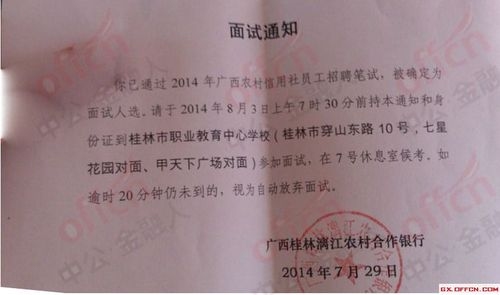 面试通知
你已通过 2014 年广西农村信用社员工招聘笔试，被确定为
面试人选。请于 2014 年 8 月 3 日上午 7 时 30 分前持本通知和身
份证到桂林市职业教育中心学校（桂林市穿山东路 10 号，七星
花园对面、甲天下广场对面）参加面试，在 7 号休息室候考。如
逾时 20 分钟仍未到的，视为自动放弃面试。
广西桂林漓江农村合作银行
2014 年 7 月 29 日
GX.OFFCN.COM